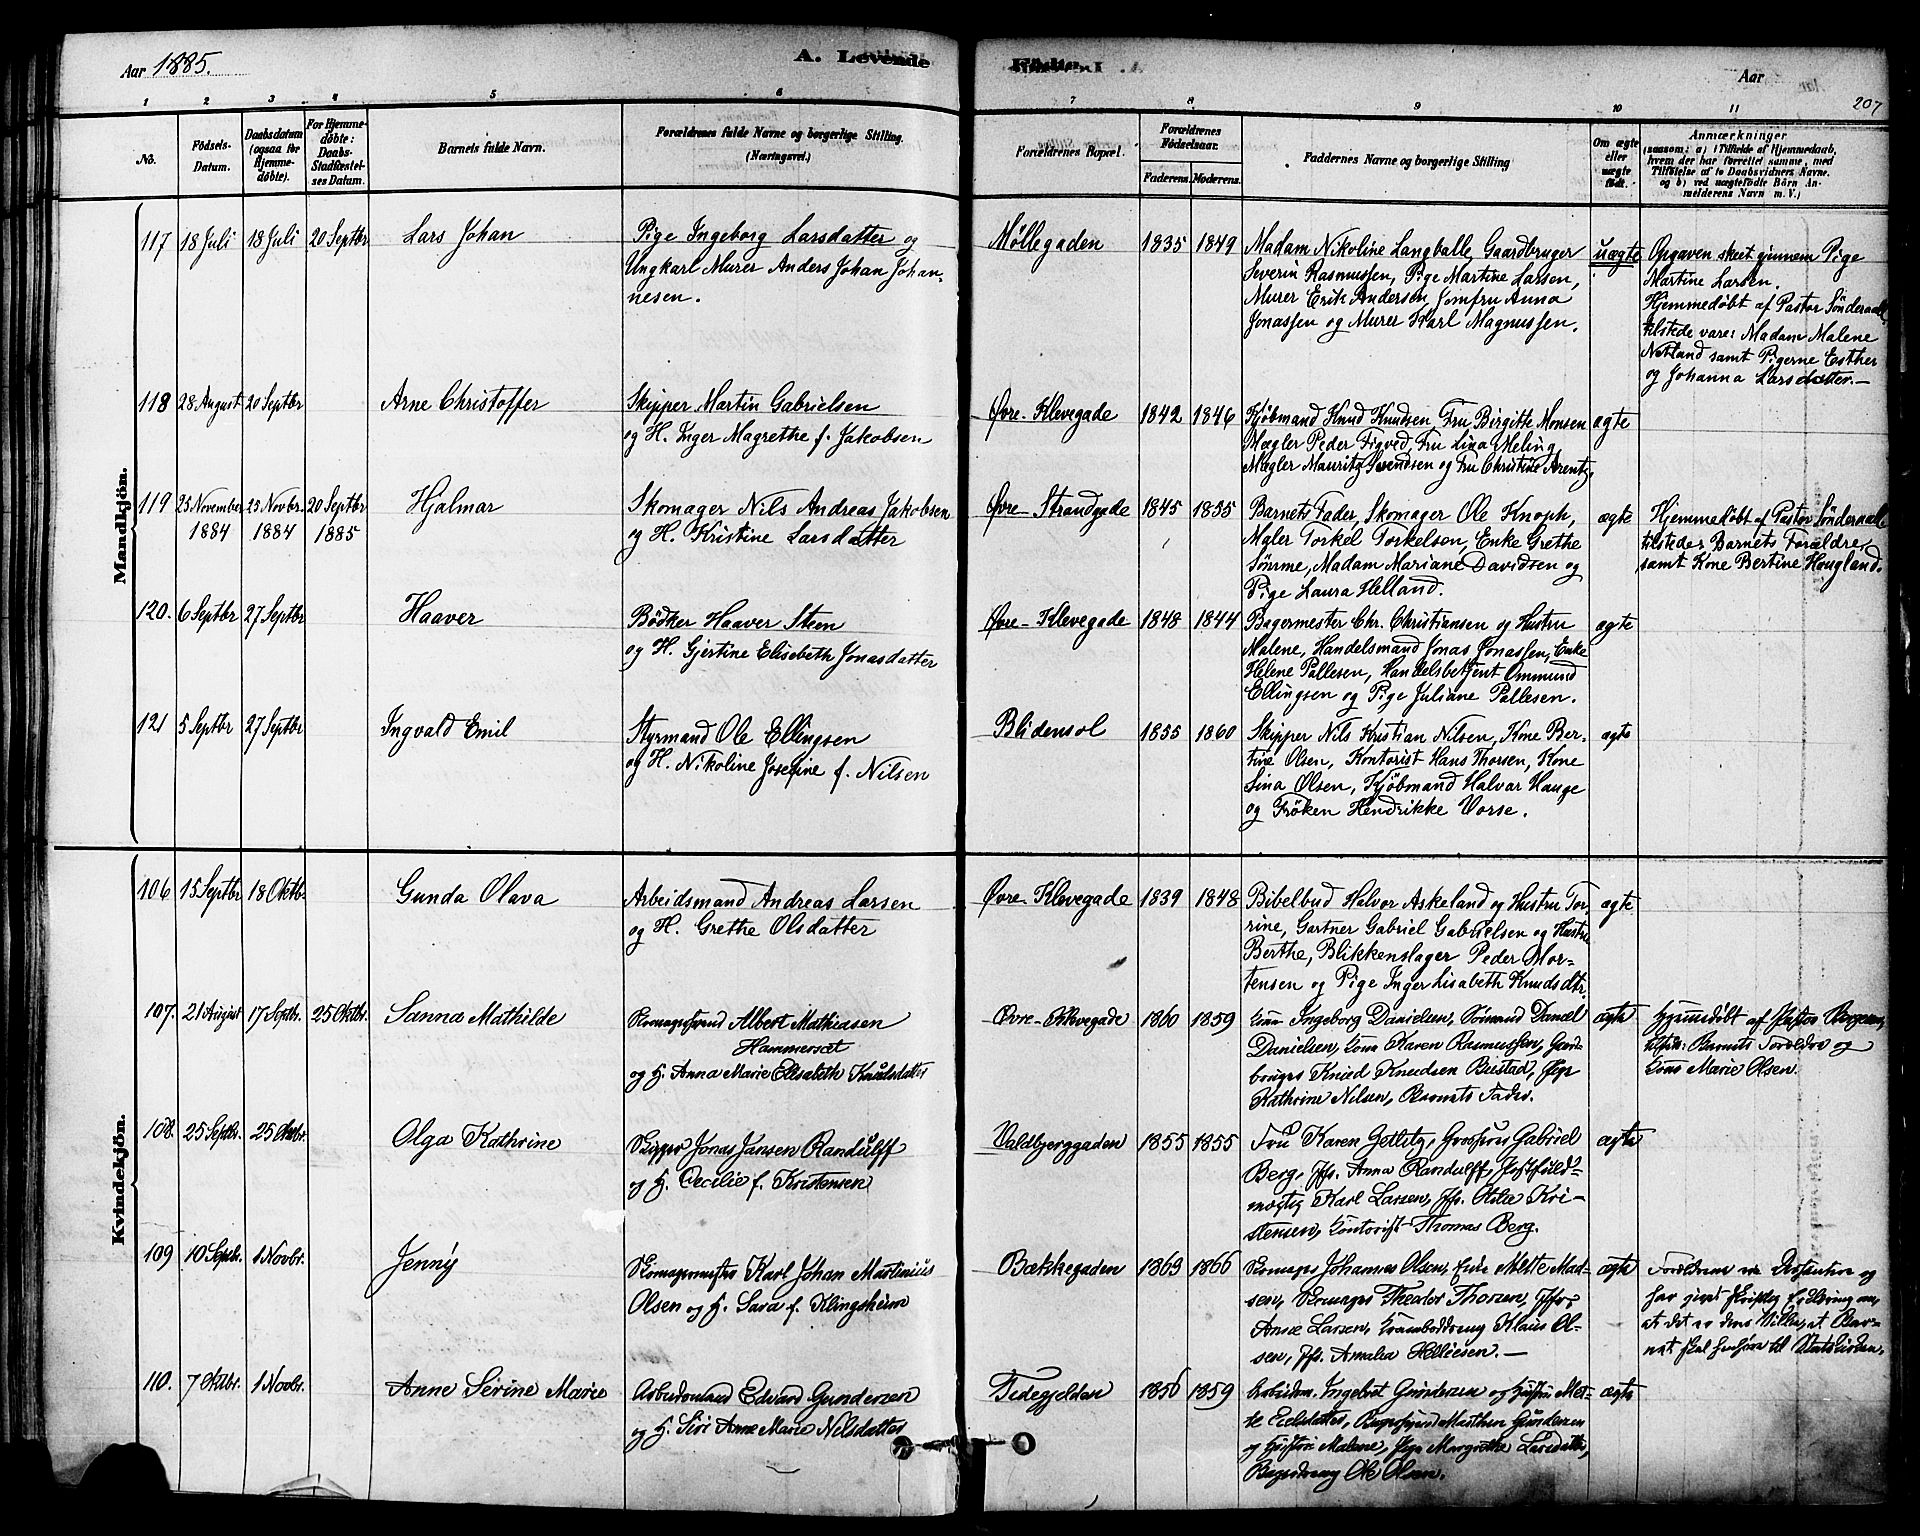 Aar 1885.
A. Levende
Fødte.
Aar
207
1
2
3
4
5
6
7
8
9
10
11
No.
Fødsels-
Datum.
Daabsdatum
(ogsaa for
Hjemme-
døbte).
For Hjemme-
døbte:
Daabs-
Stadfæstel-
ses Datum.
Barnets fulde Navn.
Forældrenes fulde Navne og borgerlige Stilling.
(Næringsvei.)
Forældrenes Bopæl.
Forældrenes
Fødselsaar.
Faderens. Moderens.
Faddernes Navne og borgerlige Stilling
Om ægte
eller
uægte
født.
Anmærkninger
(saasom: a) i Tilfælde af Hjemmedaab,
hvem der har forrettet samme, med
Tilføielse af to Daabsvidners Navne.
og b) ved uægtefødte Børn An-
melderens Navn m. V.)
Mandkjön.
117 18 Juli 18 Juli 20 Septbr Lars Johan
Pige Ingeborg Larsdatter og
Ungkarl Murer Anders Johan Johan-
nesen.
Møllegaden 1835 1849
Madam Nikoline Langballe, Gaardbruger
Severin Rasmussen, Pige Martine Larsen,
Murer Erik Andersen, Jomfru Anna
Jonassen og Murer Karl Magnussen.
uægte
Opgaven skeet gjennem Pige
Martine Larsen.
Hjemmedøbt af Pastor Sönderaal
tilstede vare: Madam Malene
Netland samt Pigerne Esther
og Johanna Larsdatter.—
118 28 August 20 Septbr Arne Christoffer
Skipper Martin Gabrielsen
og H. Inger Magrethe f. Jakobsen
Øvre-Klevegade 1842 1846
Kjøbmand Knud Knudsen Fru Birgitte Monsen
Mægler Peder Figved, Fru Lina Meling
Mægler Mauritz Svendsen og Fru Christine Arentz,
ægte
119 25 November 25 Novbr. 20 Septbr Hjalmar
1884 1884 1885
Skomager Nils Andreas Jakobsen
og H. Kristine Larsdatter
Øvre-Strandgade 1845 1855
Barnets Fader, Skomager Ole Knoph,
Maler Torkel Torkelsen, Enke Grethe
Sömme, Madam Mariane Davidsen og
Pige Laura Helland.
ægte
Hjemmedøbt af Pastor Sönderaal
tilstede: Barnets Forældre,
samt Kone Bertine Hougland.
120. 6 Septbr 27 Septbr Haaver
Bödker Haaver Steen
og H. Gjertine Elisebeth Jonasdatter
Øvre-Klevegade 1848 1844
Bagermester Chr. Christiansen og Hustru
Malene, Handelsmand Jonas Jonassen, Enke
Helene Pallesen, Handelsbetjent Ommund
Ellingsen og Pige Juliane Pallesen.
ægte
121 5 Septbr 27 Septbr Ingvald Emil
Styrmand Ole Ellingsen
og H. Nikoline Josefine f. Nilsen
Blidensol 1855 1860
Skipper Nils Kristian Nilsen, Kone Ber-
tine Olsen, Kontorist Hans Thorsen, Kone
Lina Olsen, Kjøbmand Halvar Hauge
og Fröken Hendrikke Vorse.
ægte
Kvindekjön.
106 15 Septbr 18 Oktb. Gunda Olava
Arbeidsmand Andreas Larsen
og H. Grethe Olsdatter
Øvre-Klevegade 1839 1848
Bibelbud Halvor Askeland og Hustru Tor-
rine, Gartner Gabriel Gabrielsen og Hustru
Berthe, Blikkenslager Peder Mor-
tensen og Pige Inger Lisabeth Knudsdtr.
ægte
107. 21 August 17 Septbr. 25 Oktbr. Sanna Mathilde
Skomagersvend Albert Mathiasen
Hammersæt
og H. Anna Marie Elisabeth Knudsdatter
Øvre-Klevegade 1860 1859
Kone Ingeborg Danielsen, Sömand Daniel
Danielsen, Kone Karen Rasmussen, Gard-
bruger Knud Knudsen Bustad, Pige
Kathrine Nilsen, Barnets Fader.
ægte
Hjemmedöbt af Pastor
tilst: Barnets Forældre og
Kone Marie Olsen.
108. 25 Septbr. 25 Oktbr. Olga Kathrine
Skipper Jonas Jansen Randulff
og H. Cecilie f. Kristensen
Valdbjerggaden 1855 1855
Fru Karen Zetlitz, Grosserer Gabriel
Berg, Jfr. Anna Randulff, Postfuld-
mægtig Karl Larsen, Jfr. Kri-
stensen, Kontorist Thomas Berg.
ægte
109 10 Septbr. 1 Novbr. Jenny
Skomagermester Karl Johan Martinius
Olsen og H. Sara f. Klingsheim
Bækkegaden 1863 1866
Skomager Johannes Olsen, Enke Mette Mad-
sen, Skomager Theodor Thorsen, Jfr.
Anna Larsen, Kramboddreng Klaus Ol-
sen, Jfr. Amalia Helliesen. —
ægte
Forældrene er Dissentere og
har givet skriftlig Erklæring om,
at det er deres Villie, at Bar-
net skal henhöre til Statskirken.
110. 7 Oktbr. 1 Novbr. Anne Serine Marie
Arbeidsmand Edvard Gundersen
og H. Siri Anne Marie Nilsdatter
Tidegjelden 1856 1859
Arbeidsm. Ingebret Gundersen og Hustru Met-
te Eielsdatter, Bagersvend Mathias Gundersen
og Hustru Malene, Pige Margrethe Larsdatter,
Bagerdreng Ole Olsen.
ægte